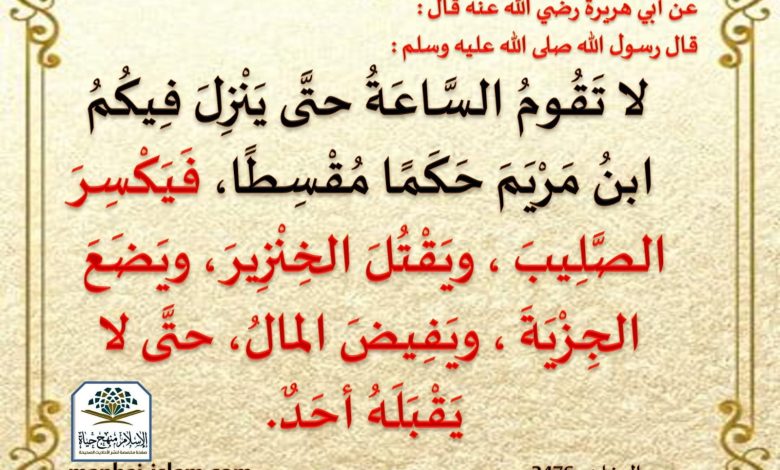 عن أبي هريرة رضي الله عنه قال :
قال رسول الله صلى الله عليه وسلم :
لا تَقُومُ السَّاعَةُ حتَّى يَنْزِلَ فِيكُمُ
ابنُ مَرْيَمَ حَكَمًا مُقْسِطًا، فَيَكْسِرَ
الصَّلِيبَ ، ويَقْتُلَ الخِنْزِيرَ، ويَضَعَ
الجِزْيَةَ ، ويَفِيضَ المالُ، حتَّى لا
يَقْبَلَهُ أحَدٌ.
الإسلام منهج حياة